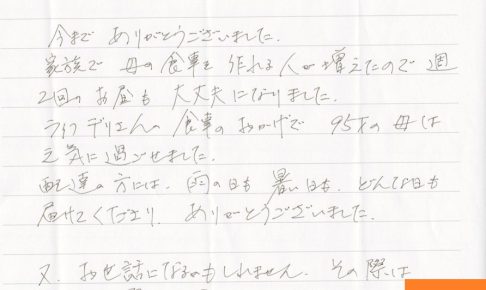 今まで ありがとうございました.
家族で 母の食事を 作れる人が増えたので 週
2回のお昼も 大丈夫になりました.
ライフデリさんの 食事のおかげで 95才の母は
元気に過ごせました.
配達の方には、雨の日も 暑い日も、どんな日も
届けてくださり、ありがとうございました.
又、お世話になるかもしれません、その際は